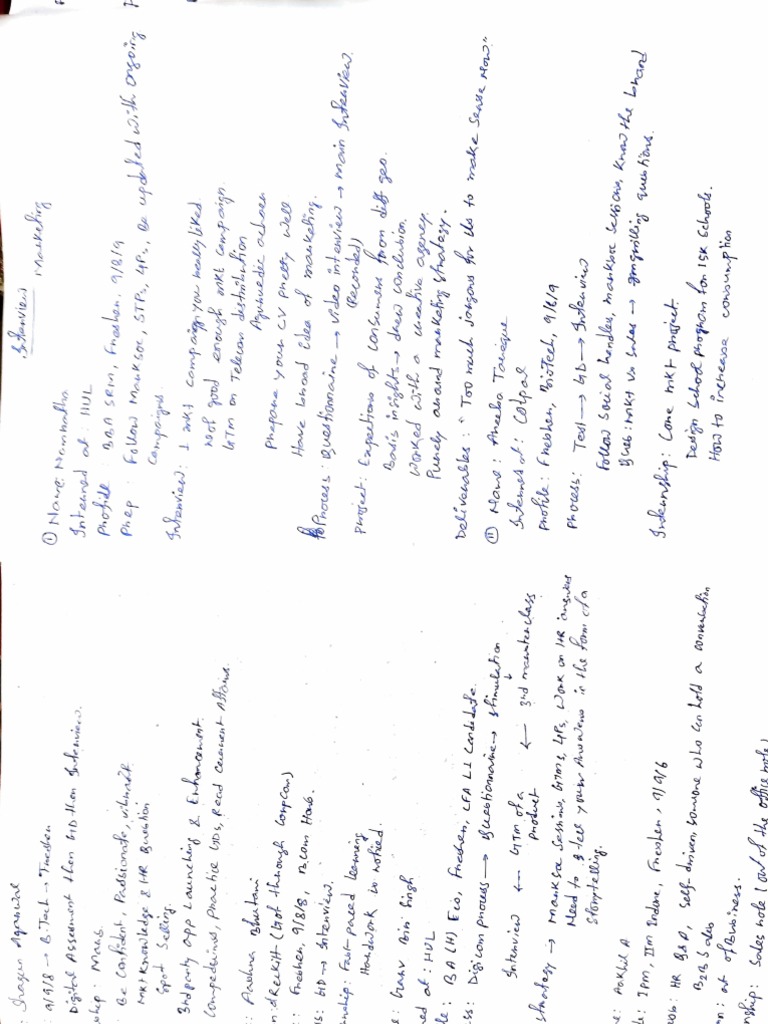 Interview Marketing
① Name: Namratha
Interned at: HUL
Profile: BBA SRM, Fresher, 9/8/9
Prep: Follow Marksoc, STPs, 4Ps, Be updated with ongoing
campaigns.
Interview: 1 mkt campaign you really liked.
Not good enough mkt campaign.
GTM on Telecom distribution
Ayurvedic
Prepare your CV pretty well
Have broad idea of marketing.
Process: Questionnaire → Video interview → main Interview.
(Recorded)
Project: Expectations of consumers from diff geo.
Basis insights → draw conclusion.
Worked with a creative agency.
Purely around marketing strategy.
Deliverables: "Too much jargons for us to make sense now"
② Name: Ameeba
Interned at: Colpal
Profile: Fresher, BioTech, 9/8/9
Process: Test → GD → Interview
Follow Social handles, marksoc sessions, know the brand
Ques: Mkt vs Sales → grilling questions.
Internship: Core mkt project.
Design School program for 15k Schools.
How to increase consumption
: Shagun Agrawal
: 9/9/8 → B.Tech → Fresher
Digital Assessment then GD then Interview.
ship: Mars
Be Confident, Passionate, vibrant
Mkt Knowledge & HR Question
Spot Selling.
3rd party app Launching & Enhancement.
Compendiums, Practice GDs, Read Current Affairs.
: Anusha Bhutani
: Reckitt (Got through CompCon)
: Fresher, 9/8/8, B.Com Hons.
: GD → Interview.
nship: Fast-paced learning
Hardwork is noticed.
: Garv Bir Singh
ned at: HUL
le: BA (H) Eco, Fresher, CFA L1 Candidate
ss: Digicon process → Questionnaire → Stimulation
↓
Interview ← GTM of a product ← 2nd masterclass
Strategy → Marksoc Sessions, GTMs, 4Ps, Work on HR answers
Need to tell your Answers in the form of a
storytelling.
: Aakhil A
: IPM, IIM Indore, Fresher, 9/9/6
: HR B&D, Self-driven, Someone who can hold a conversation
B2B Sales
: of Business.
nship: Sales role (out of the office role)